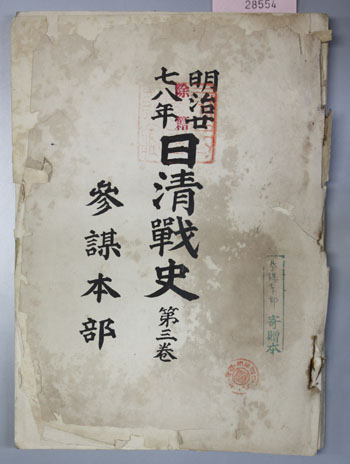 28554
明治廿
七八年
日清戰史
第三卷
參謀本部
除籍
參謀本部
寄贈本